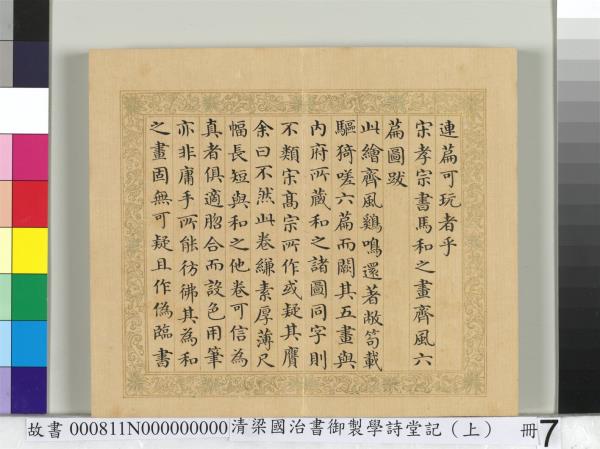 連篇可玩者乎
宋孝宗書馬和之畫齊風六
篇圖跋
此繪齊風鷄鳴還著敝笱載
驅猗嗟六篇而闕其五畫與
內府所藏和之諸圖同字則
不類宋高宗所作或疑其贋
余曰不然此卷縑素厚薄尺
幅長短與和之他卷可信為
真者俱適脗合而設色用筆
亦非庸手所能彷彿其為和
之畫固無可疑且作偽臨書
故書 000811N000000000 清梁國治書御製學詩堂記（上） 冊7